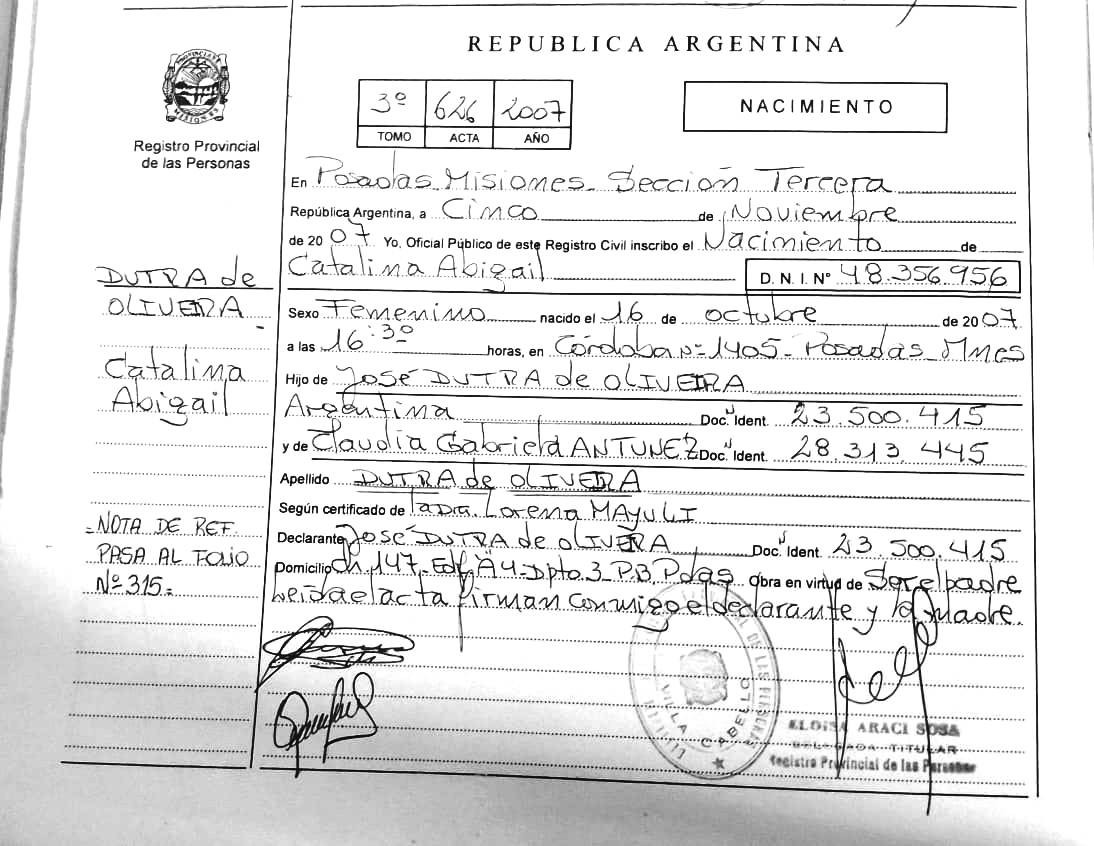 REPUBLICA ARGENTINA
3º 626 2007
TOMO ACTA AÑO
NACIMIENTO
Registro Provincial
de las Personas
En Posadas Misiones Sección Tercera
República Argentina, a Cinco de Noviembre
de 2007 Yo, Oficial Público de este Registro Civil inscribo el Nacimiento de
Catalina Abigail D.N.I. Nº 48.356.956
Sexo Femenino nacido el 16 de octubre de 2007
a las 16:30 horas, en Córdoba Nº 1405 - Posadas Mnes
Hijo de José DUTRA de OLIVEIRA
Argentina Doc. Ident. 23.500.415
y de Claudia Gabriela ANTUNEZ Doc. Ident. 28.313.445
Apellido DUTRA de OLIVEIRA
Según certificado de la Dra. Lorena MAYULI
Declarante José DUTRA de OLIVEIRA Doc. Ident. 23.500.415
Domicilio Ch. 147 - Edf. A4 - Dpto. 3 P.B. Pdas. Obra en virtud de Ser el padre
Leida el acta firman conmigo el declarante y la madre.
DUTRA de
OLIVEIRA
Catalina
Abigail
NOTA DE REF.
PASA AL FOLIO
Nº 315.
VILLA CABELLO
ELOISA ARACI SOSA
DELEGADA TITULAR
Registro Provincial de las Personas